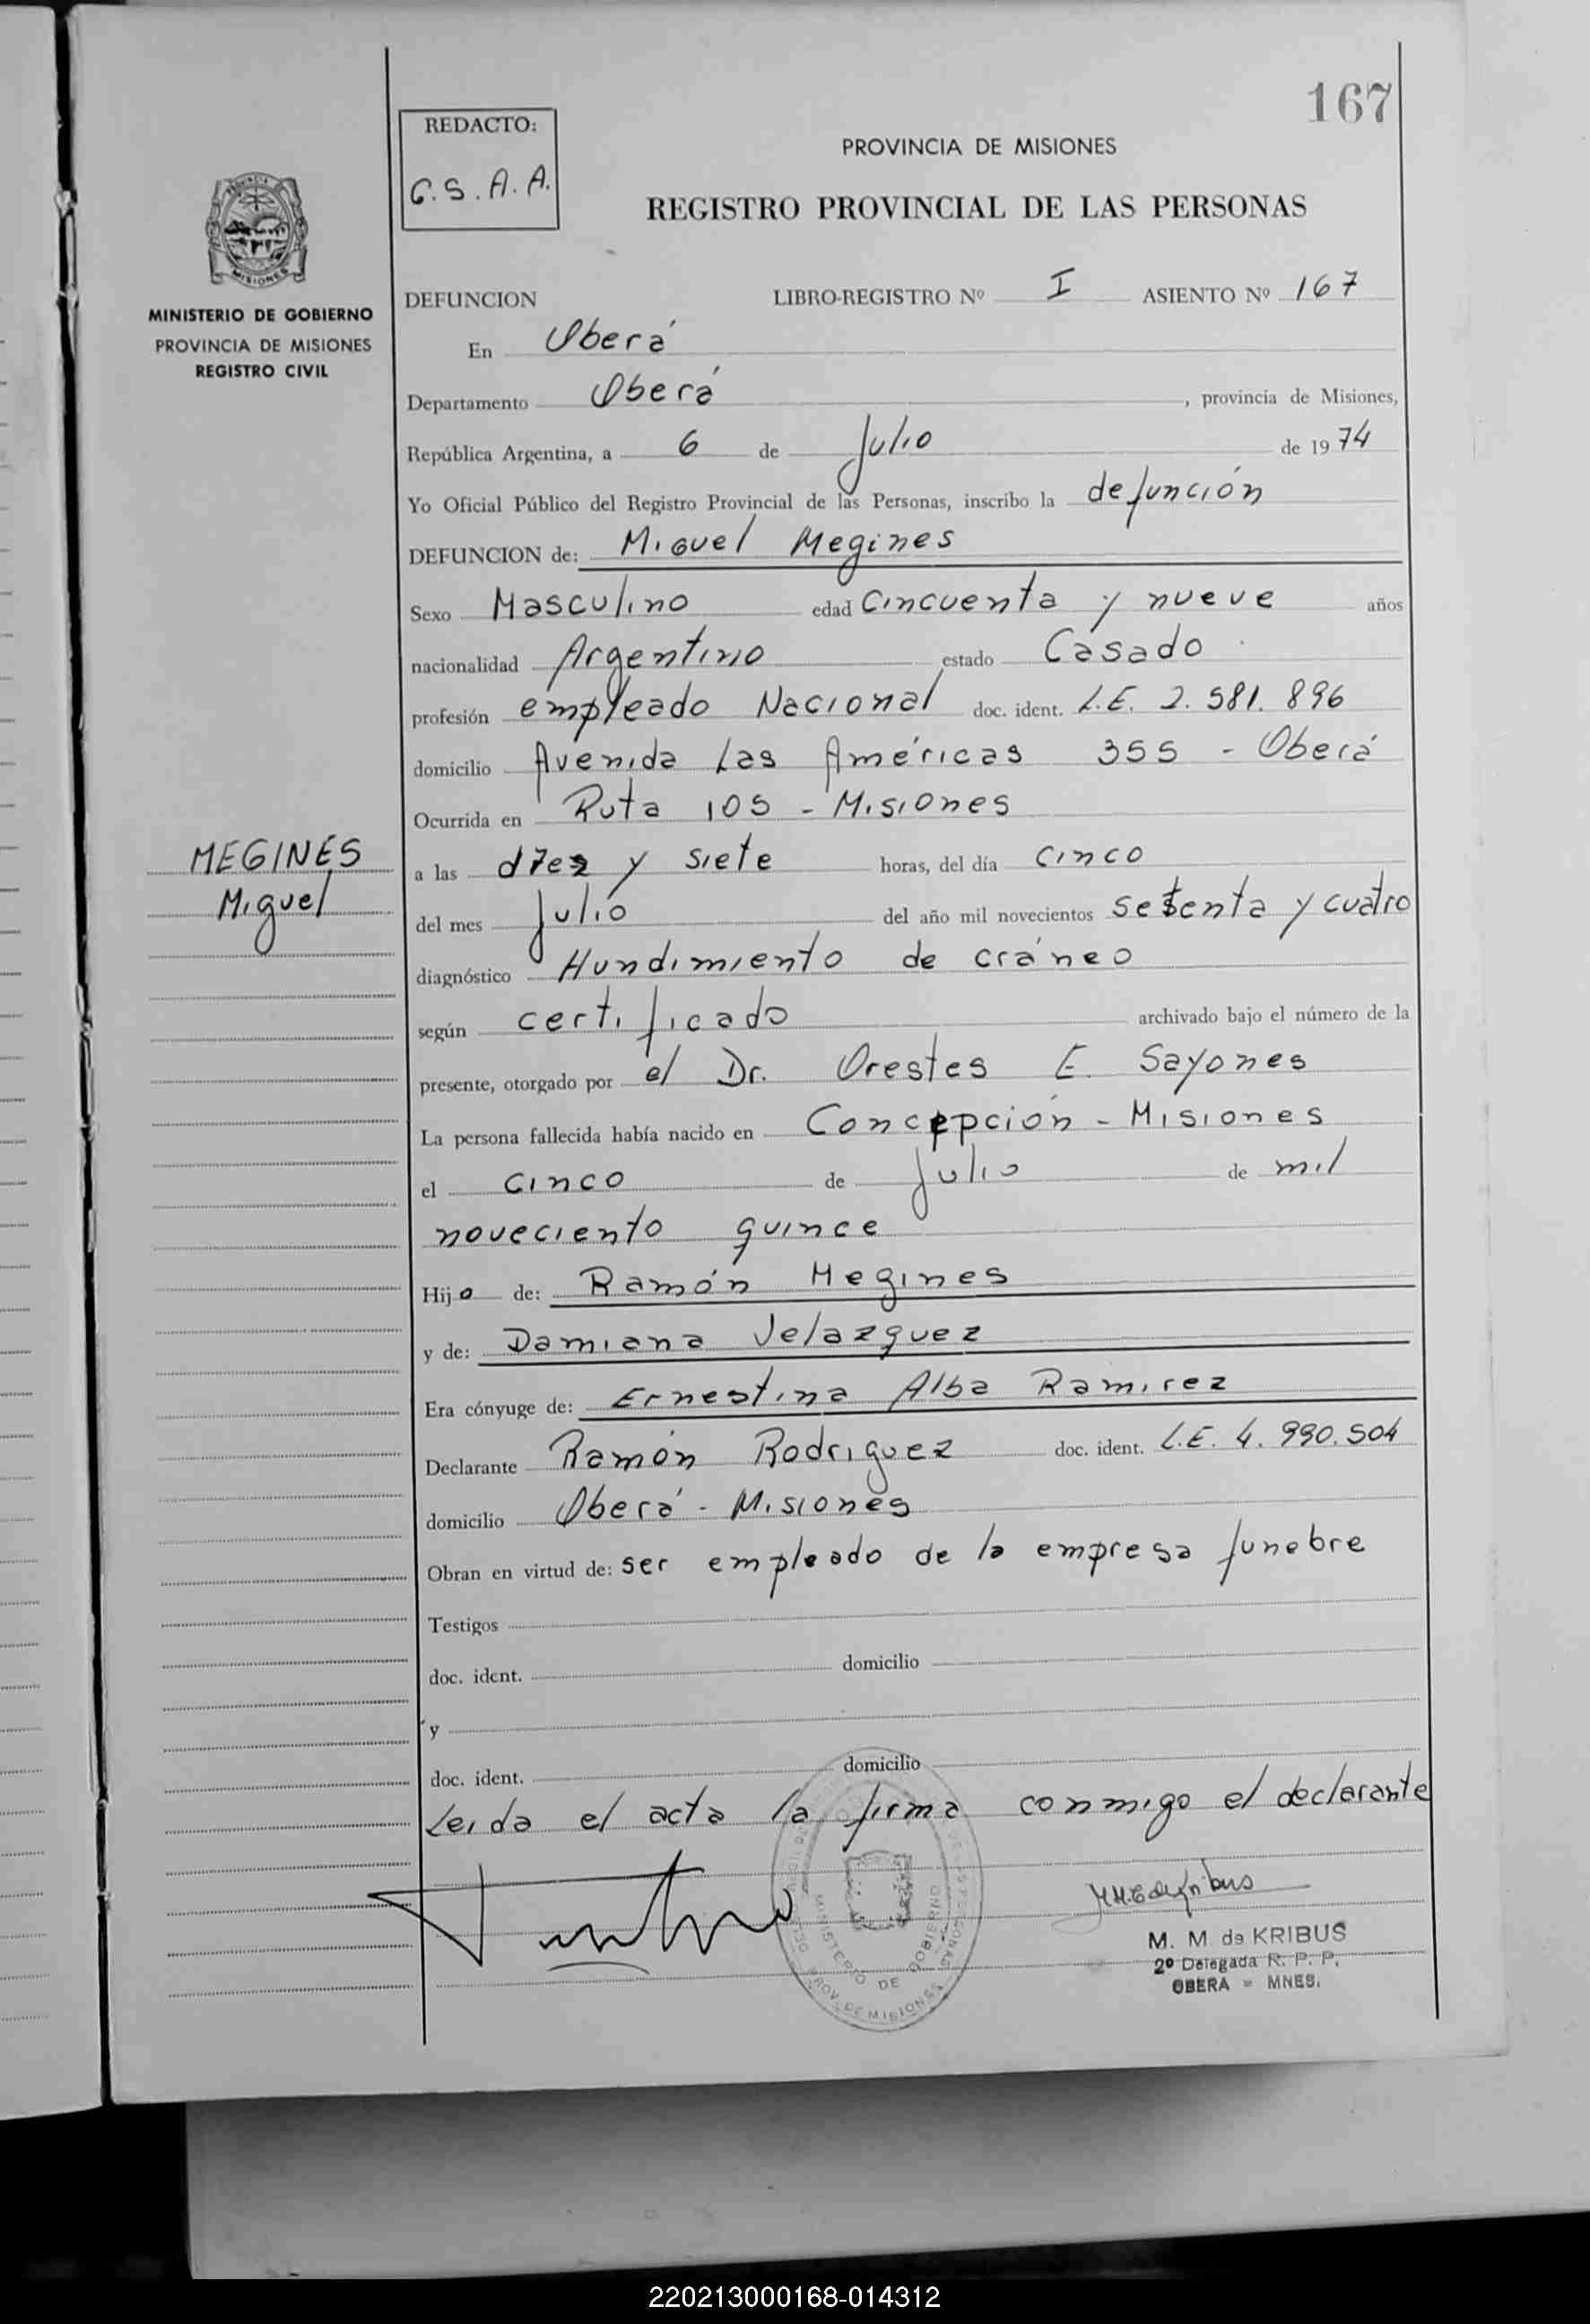 167
REDACTO:
C.S.A.A.
PROVINCIA DE MISIONES
REGISTRO PROVINCIAL DE LAS PERSONAS
MISIONES
MINISTERIO DE GOBIERNO
PROVINCIA DE MISIONES
REGISTRO CIVIL
DEFUNCION LIBRO-REGISTRO Nº I ASIENTO Nº 167
En Oberá
Departamento Oberá, provincia de Misiones,
República Argentina, a 6 de Julio de 1974
Yo Oficial Público del Registro Provincial de las Personas, inscribo la defunción
DEFUNCION de: Miguel Megines
Sexo Masculino edad Cincuenta y nueve años
nacionalidad Argentino estado Casado
profesión empleado Nacional doc. ident. L.E. 2.581.896
domicilio Avenida Las Américas 355 - Oberá
Ocurrida en Ruta 105 - Misiones
MEGINES
Miguel
a las diez y siete horas, del día cinco
del mes Julio del año mil novecientos setenta y cuatro
diagnóstico Hundimiento de cráneo
según certificado archivado bajo el número de la
presente, otorgado por el Dr. Orestes E. Sayones
La persona fallecida había nacido en Concepción - Misiones
el cinco de Julio de mil
noveciento quince
Hijo de: Ramón Megines
y de: Damiana Velazquez
Era cónyuge de: Ernestina Alba Ramirez
Declarante Ramón Rodriguez doc. ident. L.E. 4.990.504
domicilio Oberá - Misiones
Obran en virtud de: ser empleado de la empresa funebre
Testigos
doc. ident. domicilio
y
doc. ident. domicilio
Leida el acta la firma conmigo el declarante
MINISTERIO DE GOBIERNO
PROV. DE MISIONES
M. M. de KRIBUS
2º Delegada R. P. P.
OBERA = MNES.
220213000168-014312